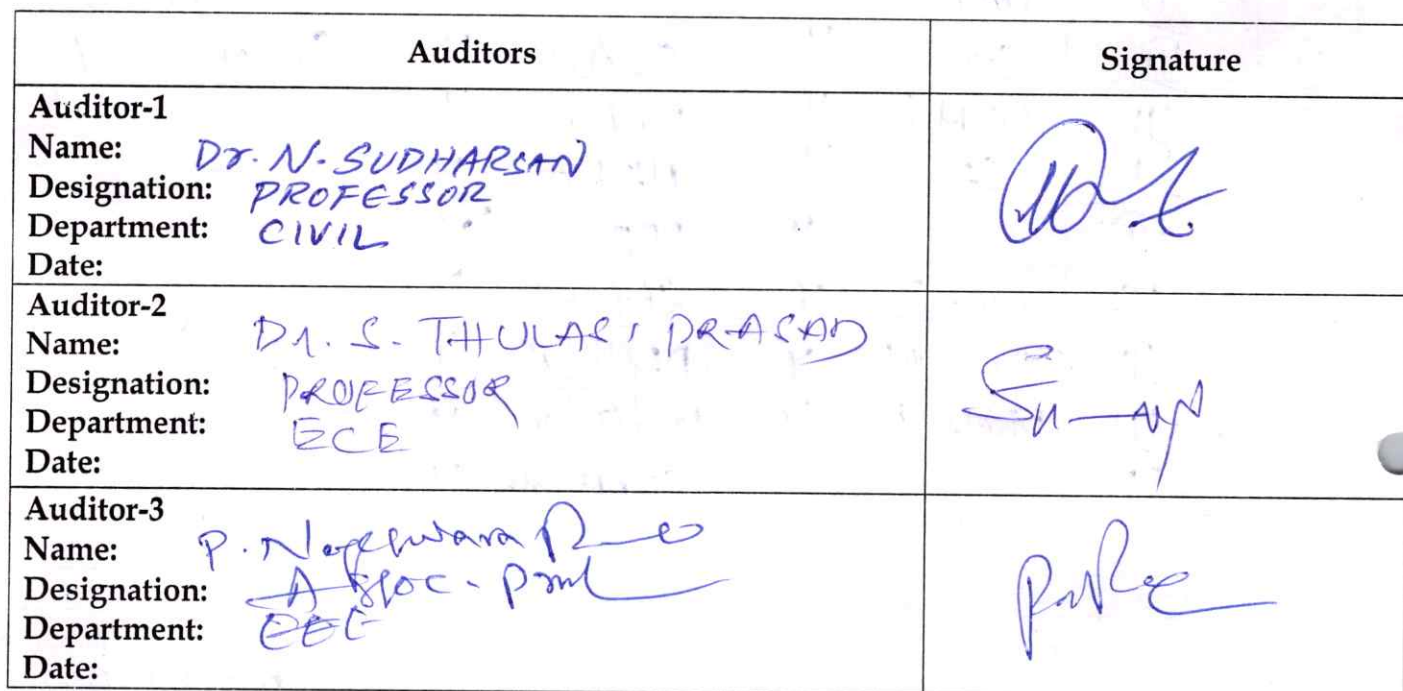 Auditors Signature
Auditor-1
Name: Dr. N. SUDHARSAN
Designation: PROFESSOR
Department: CIVIL
Date:
Auditor-2
Name: Dr. S. THULASI PRASAD
Designation: PROFESSOR
Department: ECE
Date:
Auditor-3
Name: P. Nageswara Rao
Designation: Assoc. Prof
Department: EEE
Date: